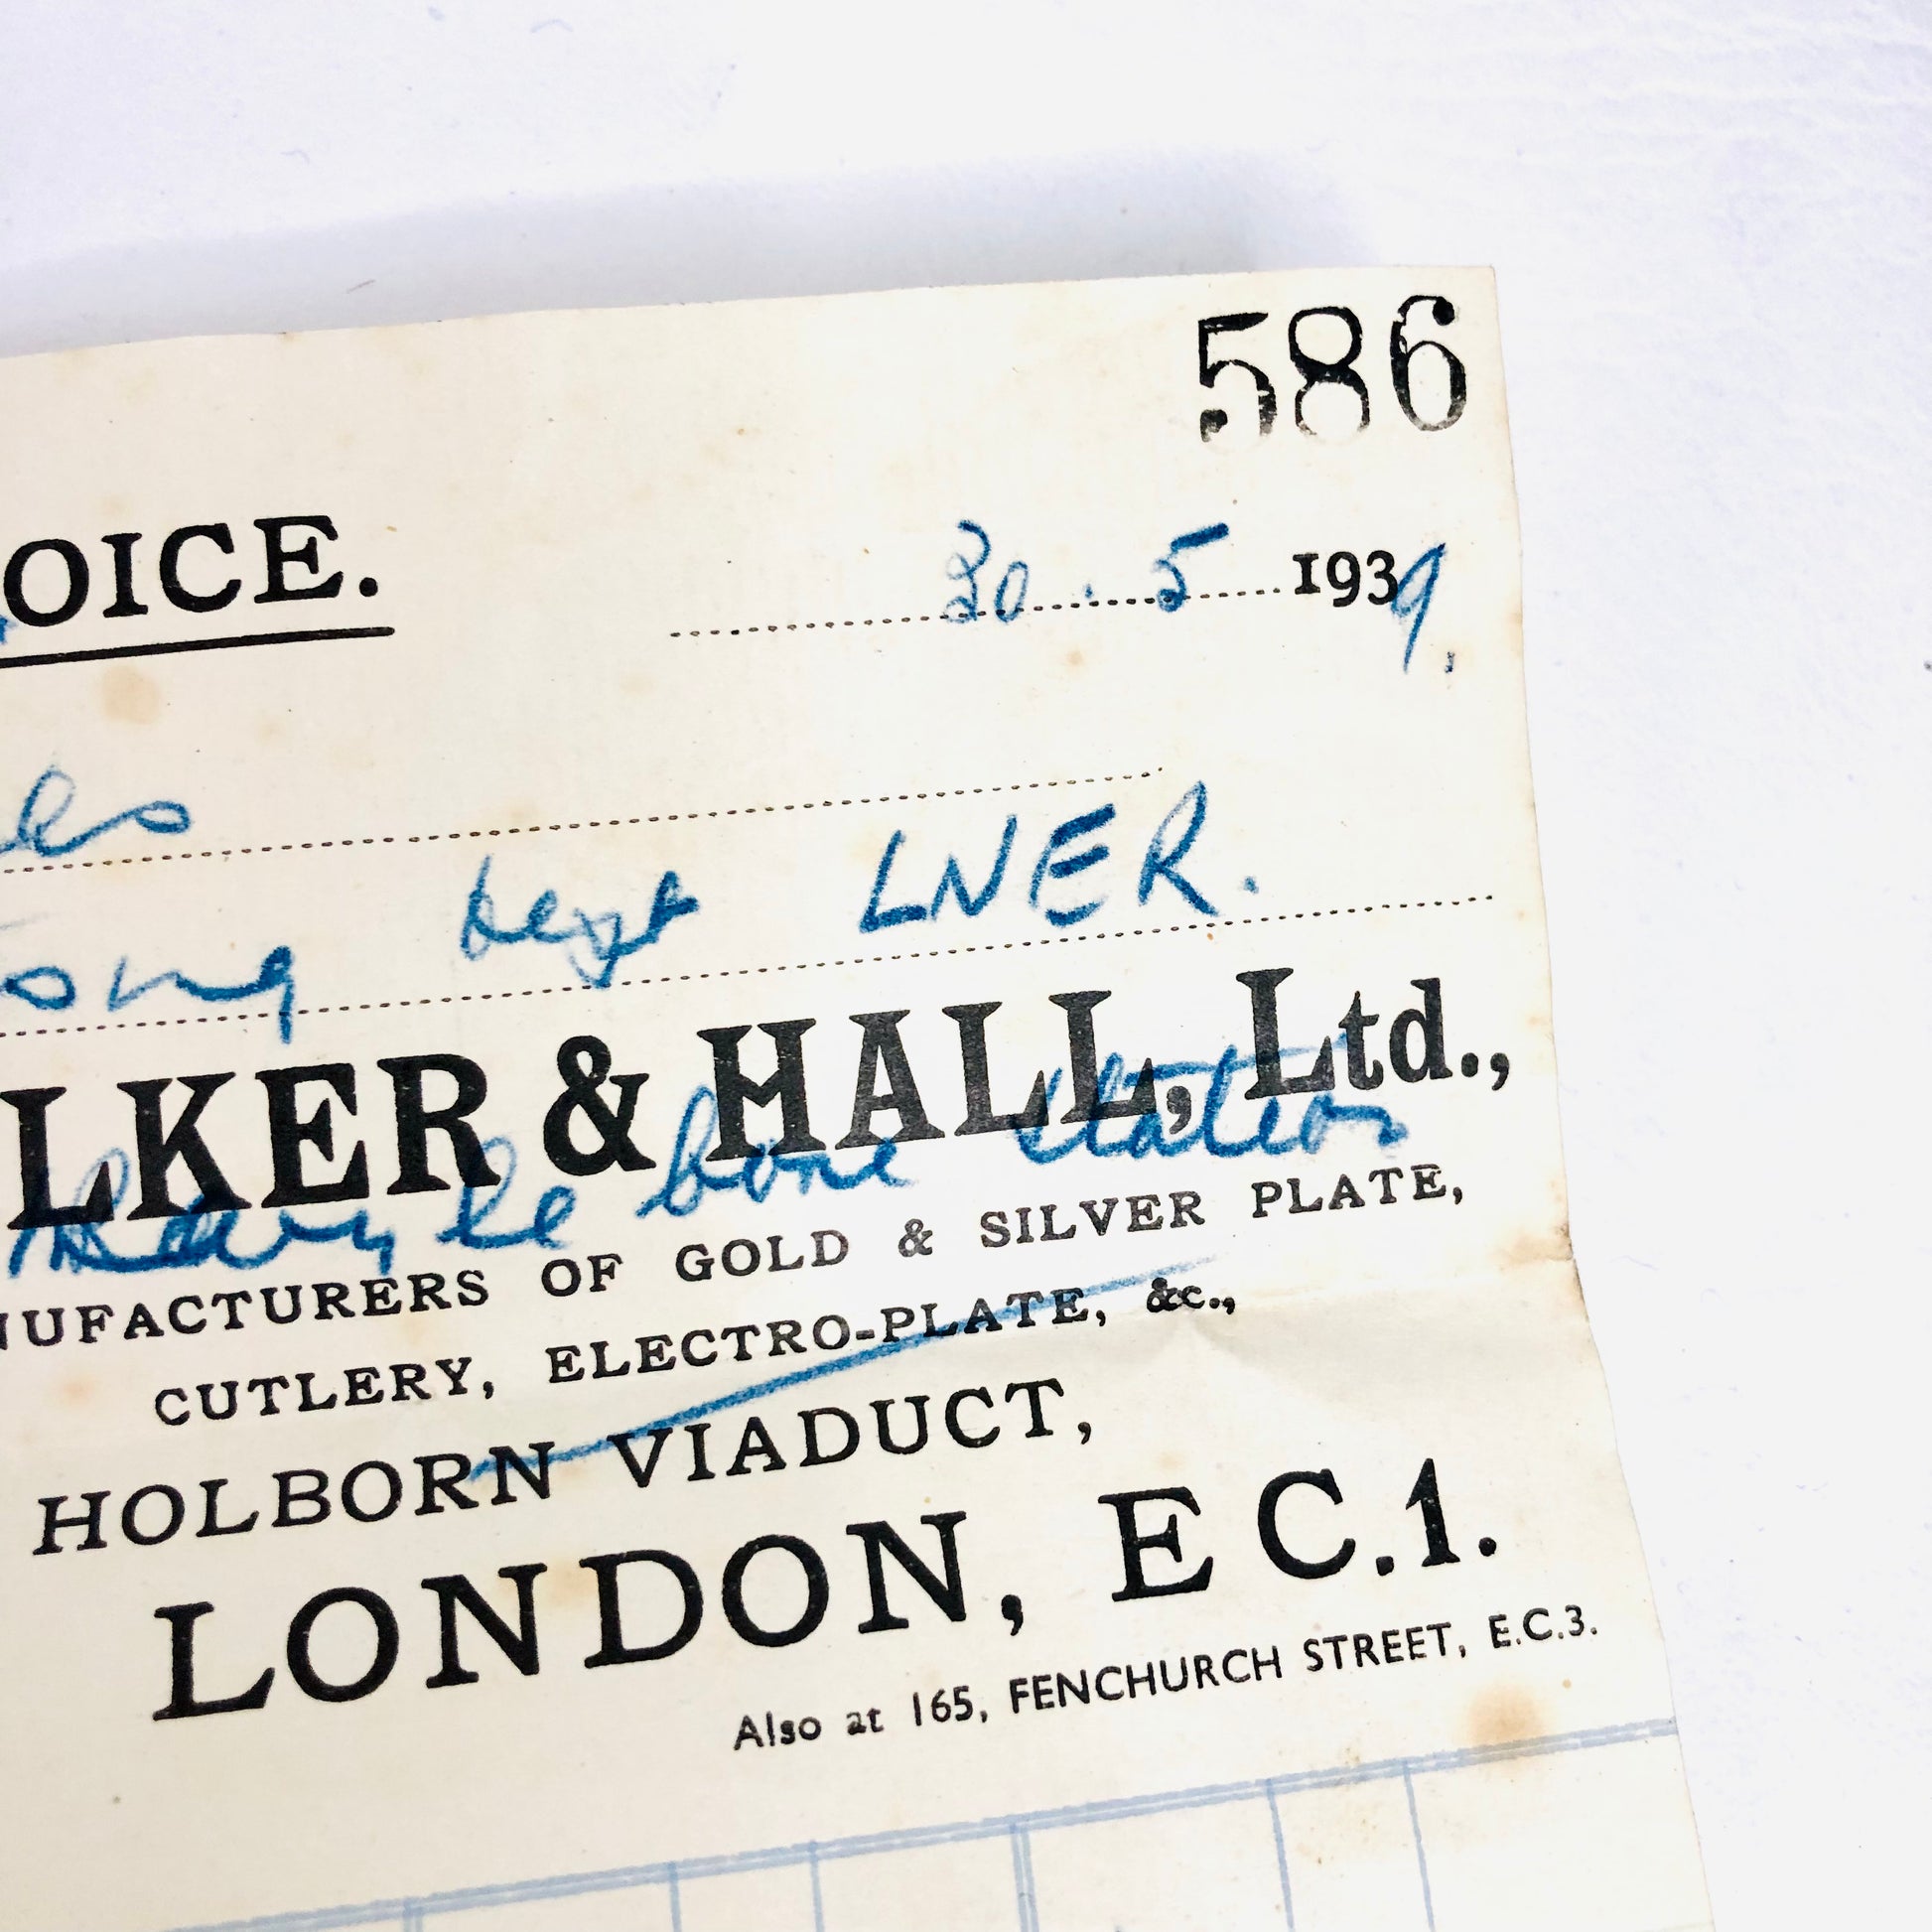 586
OICE.
30 . 5 1939,
les
ong Dept LNER.
LKER & HALL, Ltd.,
Maryle bone Station
NUFACTURERS OF GOLD & SILVER PLATE,
CUTLERY, ELECTRO-PLATE, &c.,
HOLBORN VIADUCT,
LONDON, E C.1.
Also at 165, FENCHURCH STREET, E.C.3.